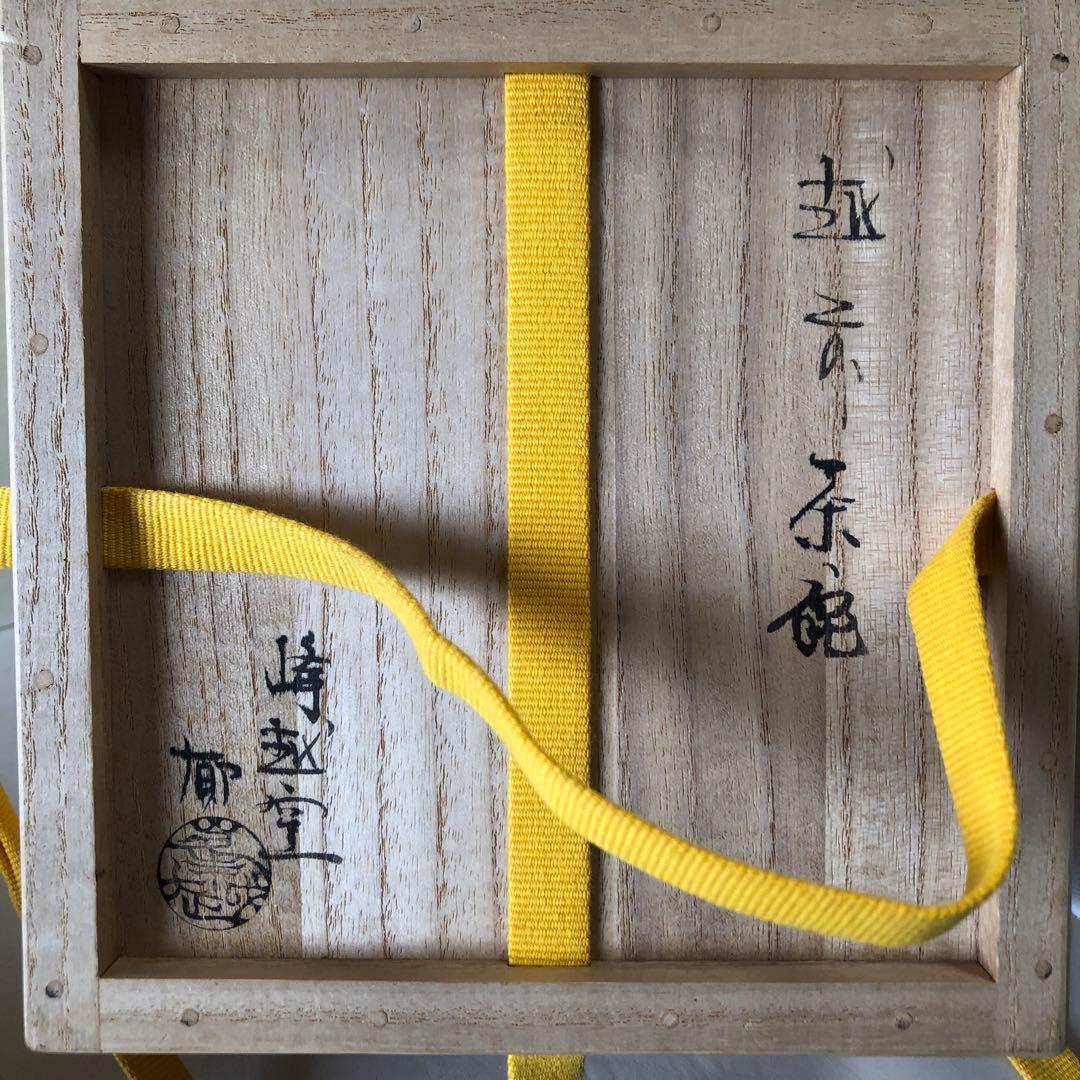 越前茶碗
峰越窯
郁